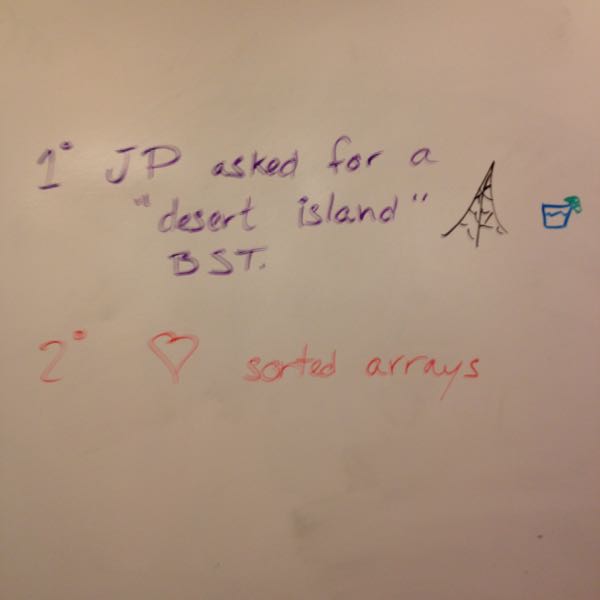 1° JP asked for a
"desert island"
BST.
2° ♡ sorted arrays